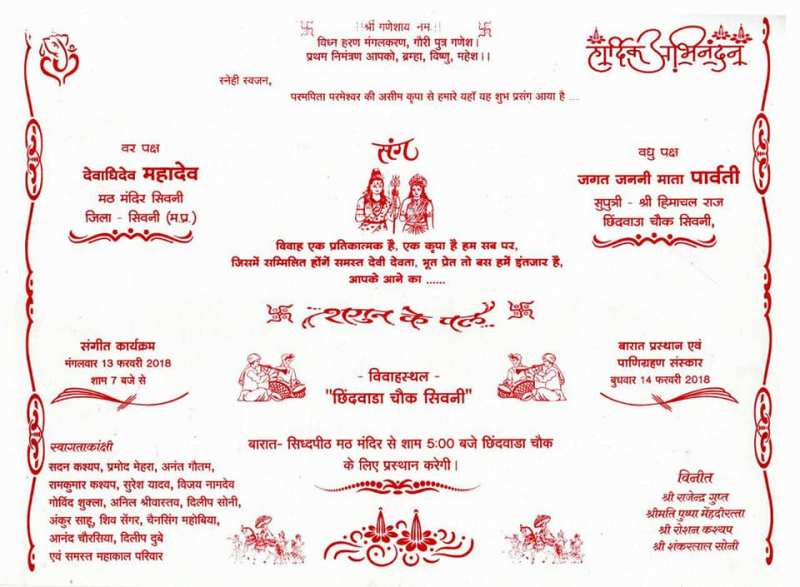 ।।श्री गणेशाय नमः।।
विघ्न हरण मंगलकरण, गौरी पुत्र गणेश।
प्रथम निमंत्रण आपको, ब्रम्हा, विष्णु, महेश।।
हार्दिक अभिनंदन
स्नेही स्वजन,
परमपिता परमेश्वर की असीम कृपा से हमारे यहाँ यह शुभ प्रसंग आया है ....
वर पक्ष
देवाधिदेव महादेव
मठ मंदिर सिवनी
जिला - सिवनी (म.प्र.)
संग
वधु पक्ष
जगत जननी माता पार्वती
सुपुत्री - श्री हिमाचल राज
छिंदवाडा चौक सिवनी,
विवाह एक प्रतिकात्मक है, एक कृपा है हम सब पर,
जिसमें सम्मिलित होंगें समस्त देवी देवता, भूत प्रेत तो बस हमें इंतजार है,
आपके आने का ......
शगुन के पल...
संगीत कार्यक्रम
मंगलवार 13 फरवरी 2018
शाम 7 बजे से
- विवाहस्थल -
"छिंदवाडा चौक सिवनी"
बारात प्रस्थान एवं
पाणिग्रहण संस्कार
बुधवार 14 फरवरी 2018
बारात- सिध्दपीठ मठ मंदिर से शाम 5:00 बजे छिंदवाडा चौक
के लिए प्रस्थान करेगी।
स्वागताकांक्षी
सदन कश्यप, प्रमोद मेहरा, अनंत गौतम,
रामकुमार कश्यप, सुरेश यादव, विजय नामदेव
गोविंद शुक्ला, अनिल श्रीवास्तव, दिलीप सोनी,
अंकुर साहू, शिव सेंगर, चैनसिंग महोबिया,
आनंद चौरसिया, दिलीप दुबे
एवं समस्त महाकाल परिवार
विनीत
श्री राजेन्द्र गुप्त
श्रीमति पुष्पा मेंहदीरत्ता
श्री रोशन कश्यप
श्री शंकरलाल सोनी